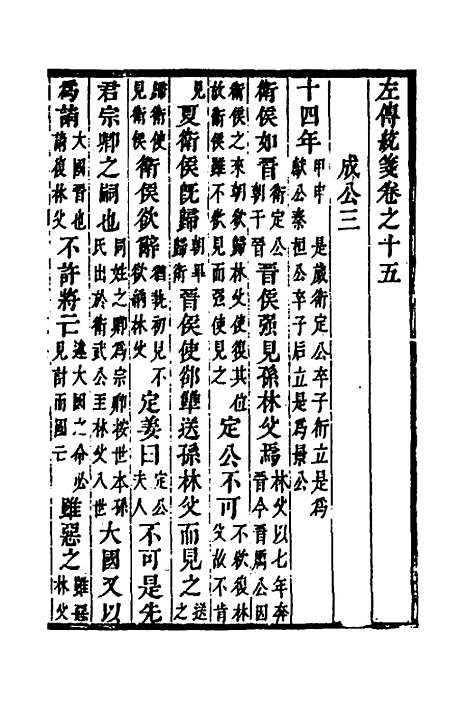 左傳統箋卷之十五
成公三
十四年甲申 是歲衛定公卒子衎立是爲獻公秦桓公卒子后立是爲景公
衛侯如晉衛定公朝于晉晉侯强見孫林父焉林父以七年奔晉今晉厲公因
衛侯之來朝欲歸林父使復其位故衛侯雖不欲見而强使見之定公不可不欲復林父故不肯
見夏衛侯旣歸朝畢歸衛晉侯使郤犫送孫林父而見之送之
歸衛使見衛侯衛侯欲辭猶執初見不欲納林父定姜曰定公夫人不可是先
君宗卿之嗣也同姓之卿爲宗卿按世本孫氏出於衛武公至林父八世大國又以
爲請大國晉也請復林父不許將亡違大國之命必見討而國亡雖惡之雖惡林父